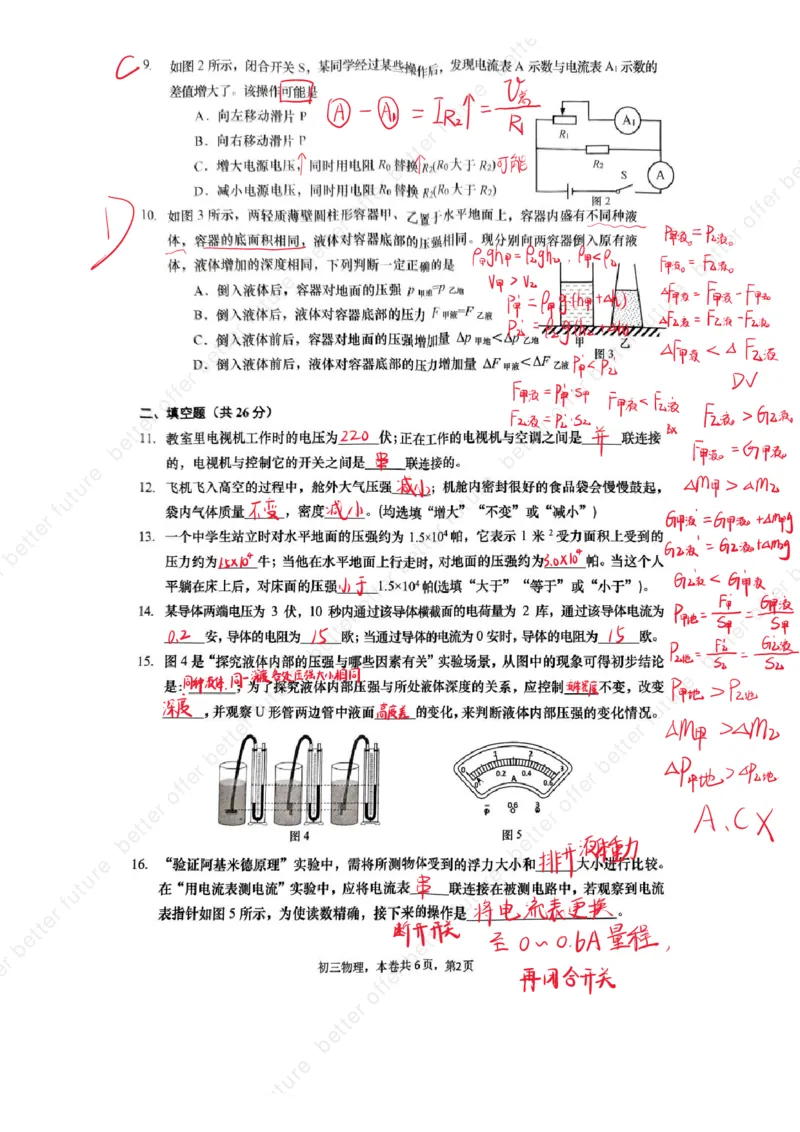 C 9. 如图 2 所示，闭合开关 S，某同学经过某些操作后，发现电流表 A 示数与电流表 A₁ 示数的
差值增大了。该操作可能是
A．向左移动滑片 P
Ⓐ − Ⓐ₁ = I_R₂↑ = U总/R₁
B．向右移动滑片 P
C．增大电源电压，↑同时用电阻 R₀ 替换↑R₂(R₀大于 R₂) 可能
D．减小电源电压，同时用电阻 R₀ 替换 R₂(R₀大于 R₂)
R₁ A₁ R₂ S A
图 2
D 10. 如图 3 所示，两轻质薄壁圆柱形容器甲、乙置于水平地面上，容器内盛有不同种液
体，容器的底面积相同，液体对容器底部的压强相同。现分别向两容器倒入原有液
体，液体增加的深度相同，下列判断一定正确的是
ρ甲gh甲=ρ乙gh乙 ρ甲<ρ乙
V甲>V乙
A．倒入液体后，容器对地面的压强 p 甲地=p 乙地
P甲'=ρ甲g(h甲+Δh)
B．倒入液体后，液体对容器底部的压力 F 甲液=F 乙液
C．倒入液体前后，容器对地面的压强增加量 Δp 甲地<Δp 乙地
甲 乙
图 3
D．倒入液体前后，液体对容器底部的压力增加量 ΔF 甲液<ΔF 乙液
P甲'<P乙'
F甲液=P甲'·S甲
F乙液=P乙'·S乙
F甲液<F乙液
Bx
P甲液₀=P乙液₀
F甲液₀=F乙液₀
ΔF甲液=F甲液−F甲液₀
ΔF乙液=F乙液−F乙液₀
ΔF甲液<ΔF乙液
D√
F乙液>G乙液
F甲液₀=G甲液₀
Δm甲>Δm乙
G甲液=G甲液₀+Δm甲g
G乙液=G乙液₀+Δm乙g
G乙液<G甲液
P甲地=F甲/S甲=G甲液/S甲
P乙地=F乙/S乙=G乙液/S乙
P甲地>P乙地
Δm甲>Δm乙
ΔP甲地>ΔP乙地
A、C X
二、填空题（共 26 分）
11. 教室里电视机工作时的电压为 220 伏；正在工作的电视机与空调之间是 并 联连接
的，电视机与控制它的开关之间是 串 联连接的。
12. 飞机飞入高空的过程中，舱外大气压强 减小；机舱内密封很好的食品袋会慢慢鼓起，
袋内气体质量 不变，密度 减小。(均选填“增大”“不变”或“减小”)
13. 一个中学生站立时对水平地面的压强约为 1.5×10⁴ 帕，它表示 1 米² 受力面积上受到的
压力约为 1.5×10⁴ 牛；当他在水平地面上行走时，对地面的压强约为 3.0×10⁴ 帕。当这个人
平躺在床上后，对床面的压强 小于 1.5×10⁴ 帕(选填“大于”“等于”或“小于”)。
14. 某导体两端电压为 3 伏，10 秒内通过该导体横截面的电荷量为 2 库，通过该导体电流为
0.2 安，导体的电阻为 15 欧；当通过导体的电流为 0 安时，导体的电阻为 15 欧。
15. 图 4 是“探究液体内部的压强与哪些因素有关”实验场景，从图中的现象可得初步结论
是：同种液体，同一深度各处压强大小相同；为了探究液体内部压强与所处液体深度的关系，应控制 液体密度 不变，改变
深度，并观察 U 形管两边管中液面 高度差 的变化，来判断液体内部压强的变化情况。
0 1 2 3
0 0.2 0.4 0.6
A
− 0.6 3
图 4 图 5
16. “验证阿基米德原理”实验中，需将所测物体受到的浮力大小和 排开液体重力 大小进行比较。
在“用电流表测电流”实验中，应将电流表 串 联连接在被测电路中，若观察到电流
表指针如图 5 所示，为使读数精确，接下来的操作是 断开开关 将电流表更换
至 0～0.6A 量程，
再闭合开关 。
初三物理，本卷共 6 页，第2页
better offer better future